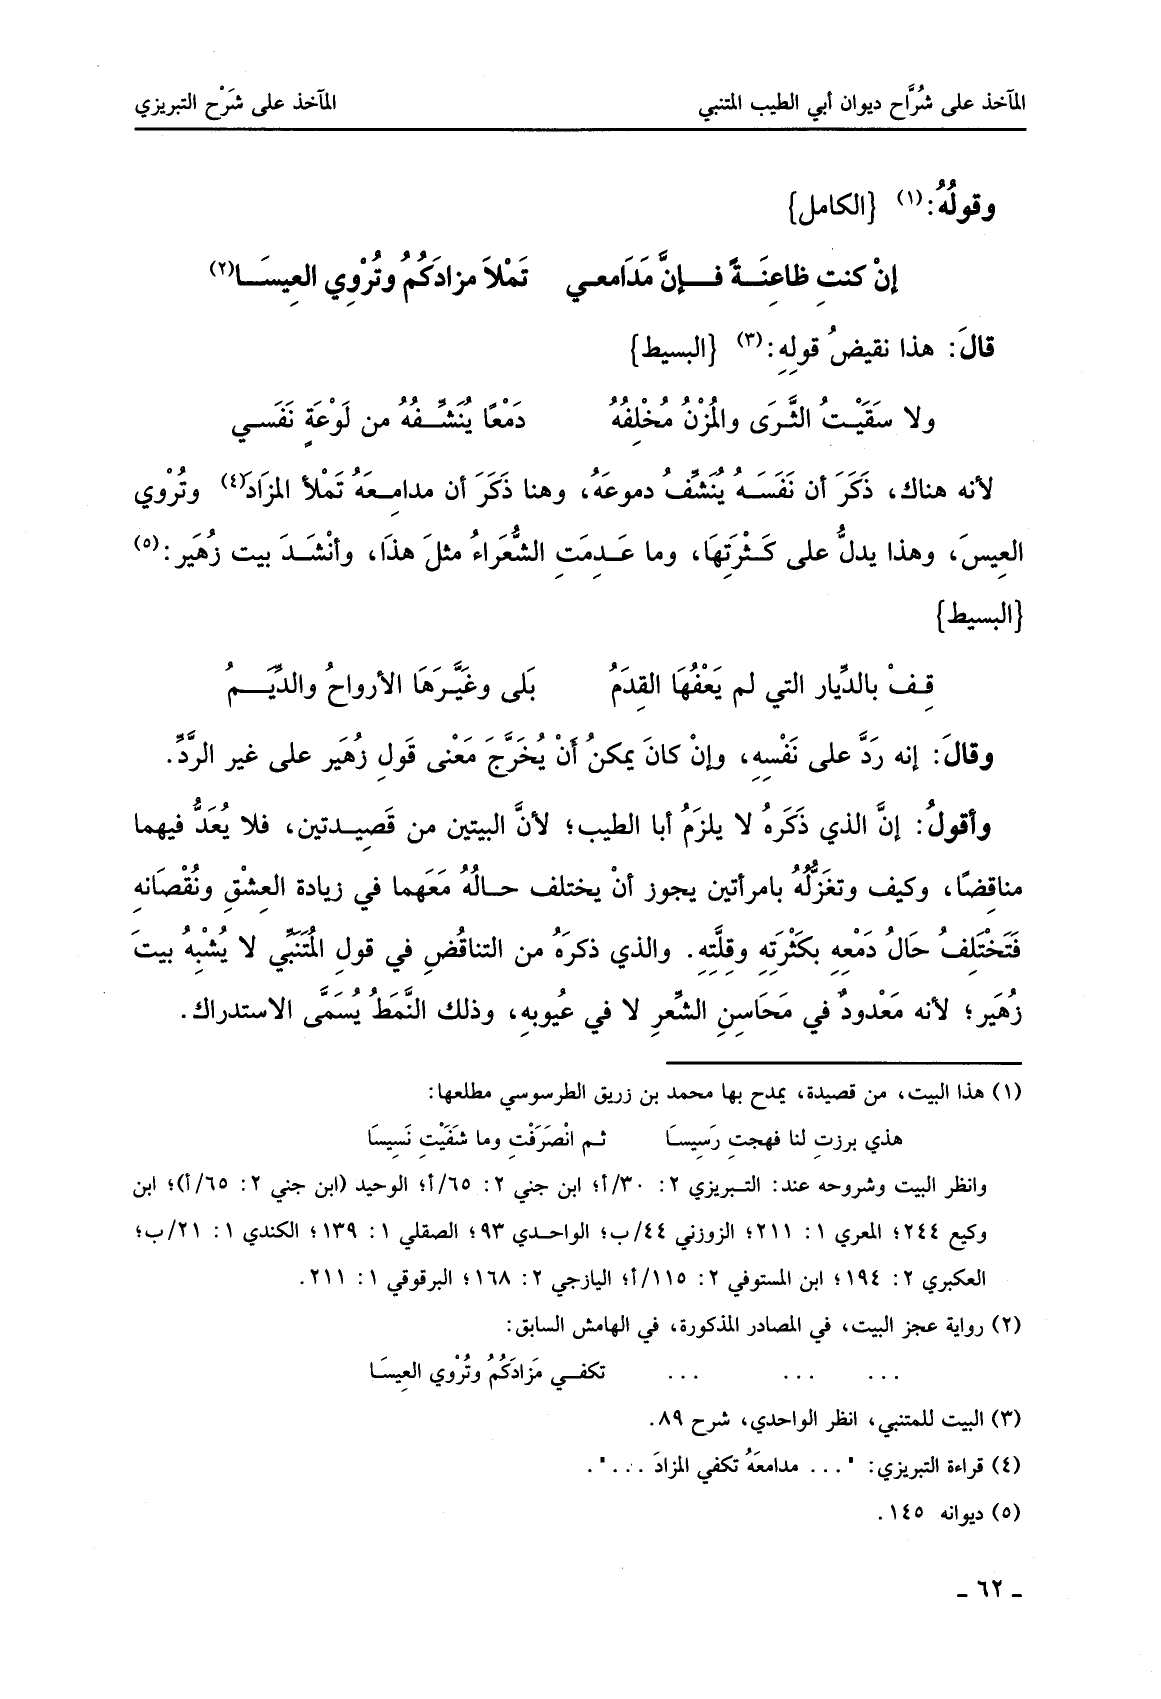 المآخذ على شُرَّاح ديوان أبي الطيب المتنبي المآخذ على شَرْح التبريزي
وقولُهُ:(١) {الكامل}
إنْ كنتِ ظاعِنَةً فإنَّ مَدَامعي تَمْلَا مزادَكُمُ وتُرْوِي العِيسَا(٢)
قالَ: هذا نقيضُ قولِهِ:(٣) {البسيط}
ولا سَقَيْتُ الثَّرَى والمُزْنُ مُخْلِفُهُ دَمْعًا يُنَشِّفُهُ من لَوْعَةٍ نَفَسي
لأنه هناك، ذَكَرَ أن نَفَسَهُ يُنَشِّفُ دموعَهُ، وهنا ذَكَرَ أن مدامِعَهُ تَمْلأ المزَادَ(٤) وتُرْوي
العِيسَ، وهذا يدلُّ على كَثْرَتِهَا، وما عَدِمَتِ الشُّعَراءُ مثلَ هذَا، وأنْشَدَ بيت زُهَير:(٥)
{البسيط}
قِفْ بالدِّيار التي لم يَعْفُهَا القِدَمُ بَلى وغَيَّرَهَا الأرواحُ والدِّيَمُ
وقالَ: إنه رَدَّ على نَفْسِهِ، وإنْ كانَ يمكنُ أَنْ يُخَرَّجَ مَعْنى قَولِ زُهَير على غير الرَّدِّ.
وأقولُ: إنَّ الذي ذَكَرَهُ لا يلزَمُ أبا الطيب؛ لأنَّ البيتين من قَصِيدتين، فلا يُعَدُّ فيهما
مناقِضًا، وكيف وتغَزُّلُهُ بامرأتين يجوز أنْ يختلف حالُهُ مَعَهما في زيادة العِشْقِ ونُقْصَانهِ
فَتَخْتَلِفُ حَالُ دَمْعِهِ بكَثْرَتِهِ وقلَّتِهِ. والذي ذكرَهُ من التناقُضِ في قولِ المُتَنَبِّي لا يُشْبِهُ بيتَ
زُهَير؛ لأنه مَعْدودٌ في مَحَاسِنِ الشِّعرِ لا في عيُوبهِ، وذلك النَّمَطُ يُسَمَّى الاستدراك.
(١) هذا البيت، من قصيدة، يمدح بها محمد بن زريق الطرسوسي مطلعها:
هذي برزتِ لنا فهجتِ رَسِيسَا ثم انْصَرَفْتِ وما شَفَيْتِ نَسِيسَا
وانظر البيت وشروحه عند: التبريزي ٢: ٣٠/أ؛ ابن جني ٢: ٦٥/أ؛ الوحيد (ابن جني ٢: ٦٥/أ)؛ ابن
وكيع ٢٤٤؛ المعري ١: ٢١١؛ الزوزني ٤٤/ب؛ الواحدي ٩٣؛ الصقلي ١: ١٣٩؛ الكندي ١: ٢١/ب؛
العكبري ٢: ١٩٤؛ ابن المستوفي ٢: ١١٥/أ؛ اليازجي ٢: ١٦٨؛ البرقوقي ١: ٢١١.
(٢) رواية عجز البيت، في المصادر المذكورة، في الهامش السابق:
... ... ... تكفي مَزادَكُمُ وتُرْوي العِيسَا
(٣) البيت للمتنبي، انظر الواحدي، شرح ٨٩.
(٤) قراءة التبريزي: "... مدامعَهُ تكفي المزادَ ...".
(٥) ديوانه ١٤٥.
ـ ٦٢ ـ